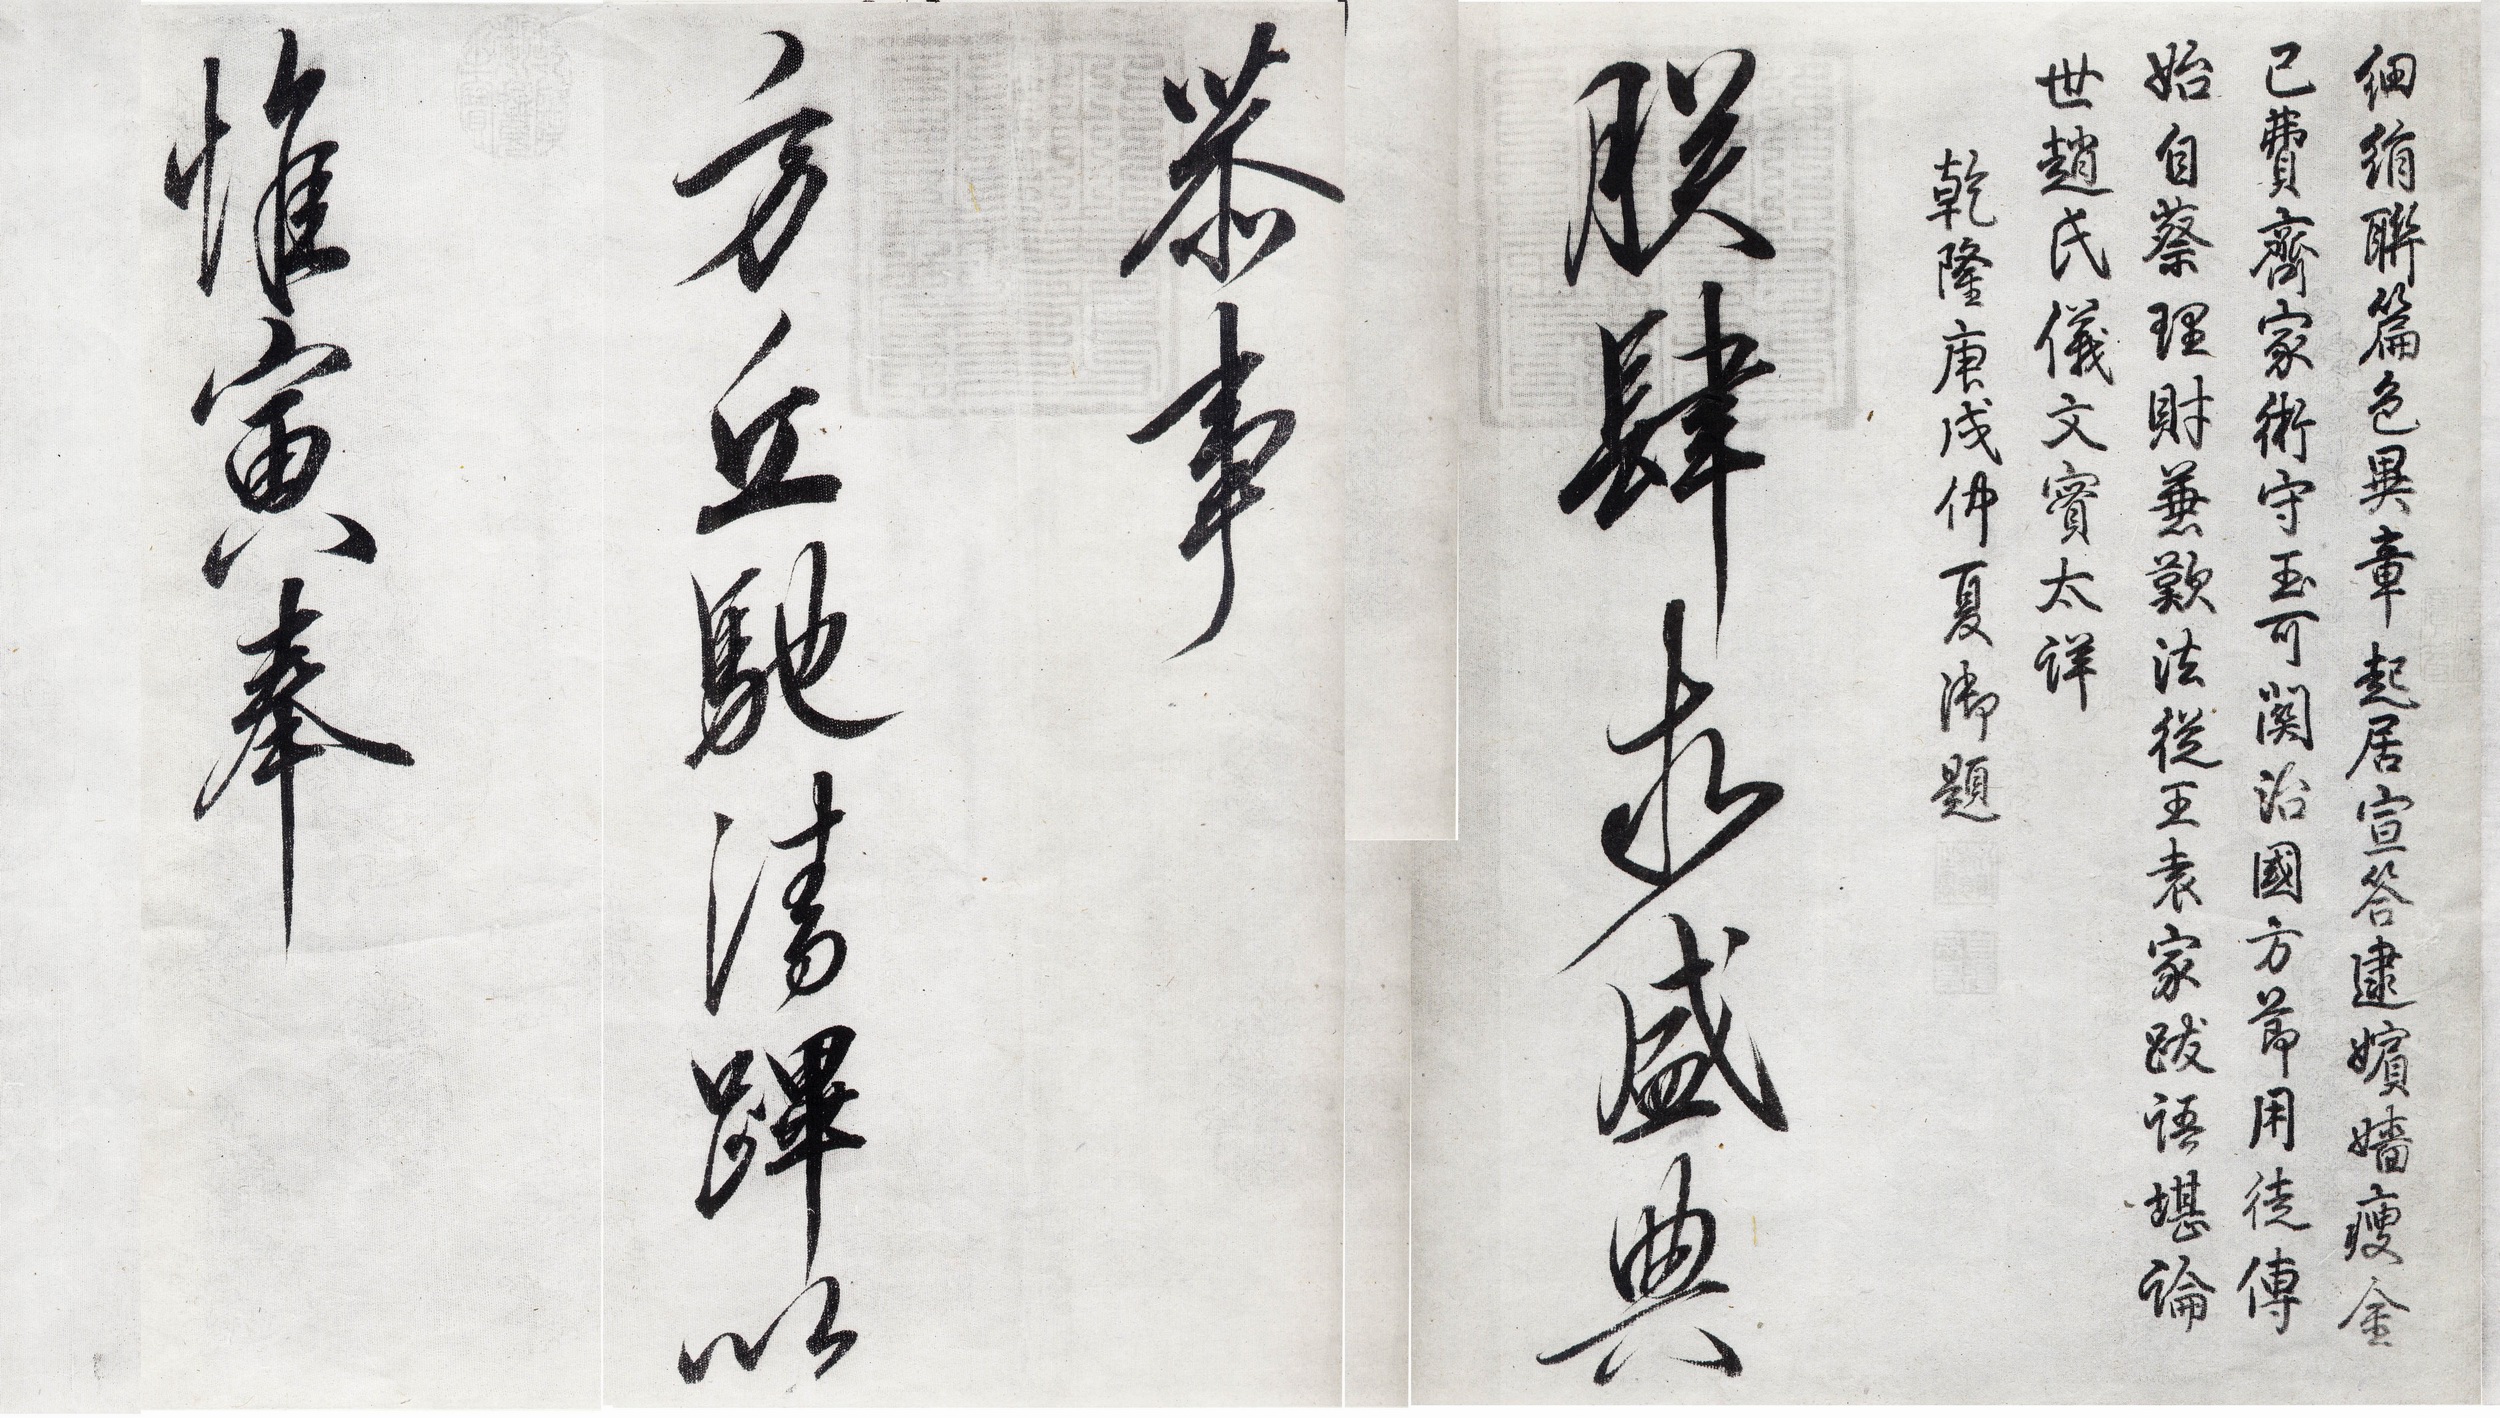 細絹聯篇色異章起居宣答逮嬪嬙瘦金
已費齊家術守玉可關治國方節用徒傳
始自蔡理財兼歎法從王袁家跋語堪論
世趙氏儀文實太詳
乾隆庚戌仲夏御題
朕肆求盛典
恭事
方丘馳清蹕以
惟寅奉